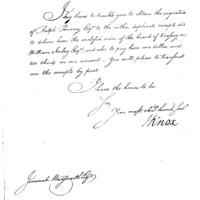 I beg leave to trouble you to obtain the signature
of Ralph Pomeroy Esqr to the within duplicate receipts and
to deliver him the enclosed note of the board of treasury on
William Imlay Esqr and also to pay him one dollar and
ten thirds on my account — You will please to transmit
me the receipts by post.
I have the honor to be
Sir
Your most obed humb Serv
HKnox
Jeremiah Wadsworth Esqr